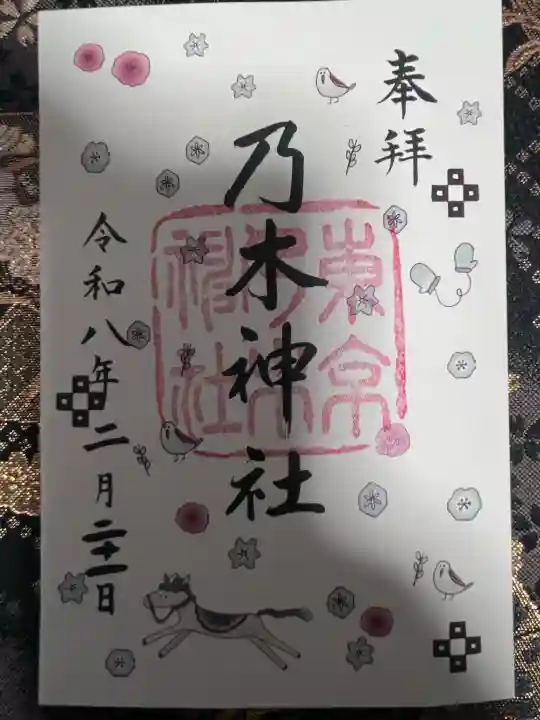 奉拝
乃木神社
東京
乃木
神社
令和八年二月二十一日